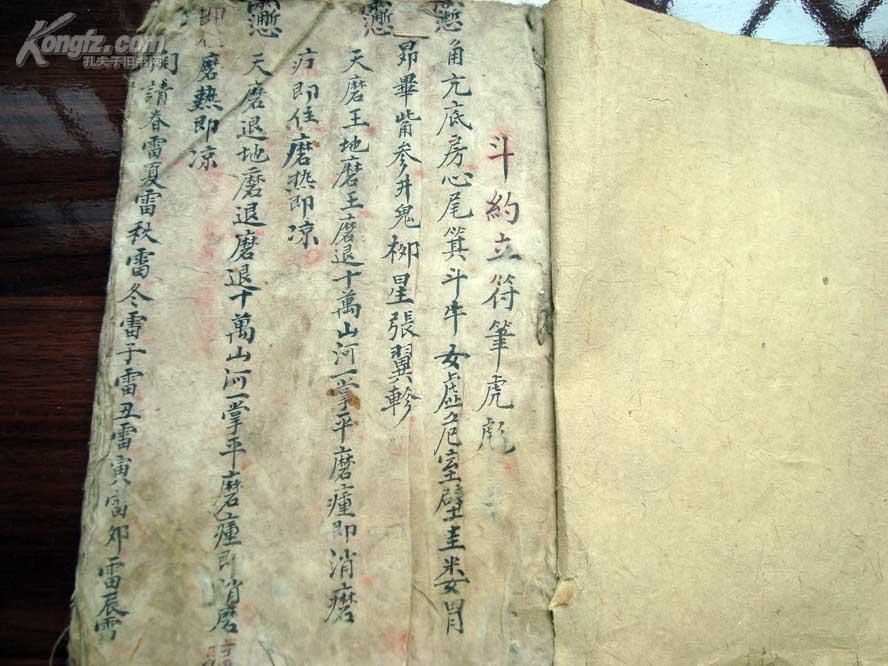 斗約立符筆虎彪
角亢底房心尾箕斗牛女虛危室壁圭娄胃
昴畢觜参井鬼柳星張翼軫
天磨王地磨王磨退十萬山河一掌平磨瘇即消磨
疔即住磨热即凉
天磨退地磨退磨退十萬山河一掌平磨瘇即消磨
磨熱即凉
請春雷夏雷秋雷冬雷子雷丑雷寅雷卯雷辰雷
Kongfz.com
孔夫子旧书网